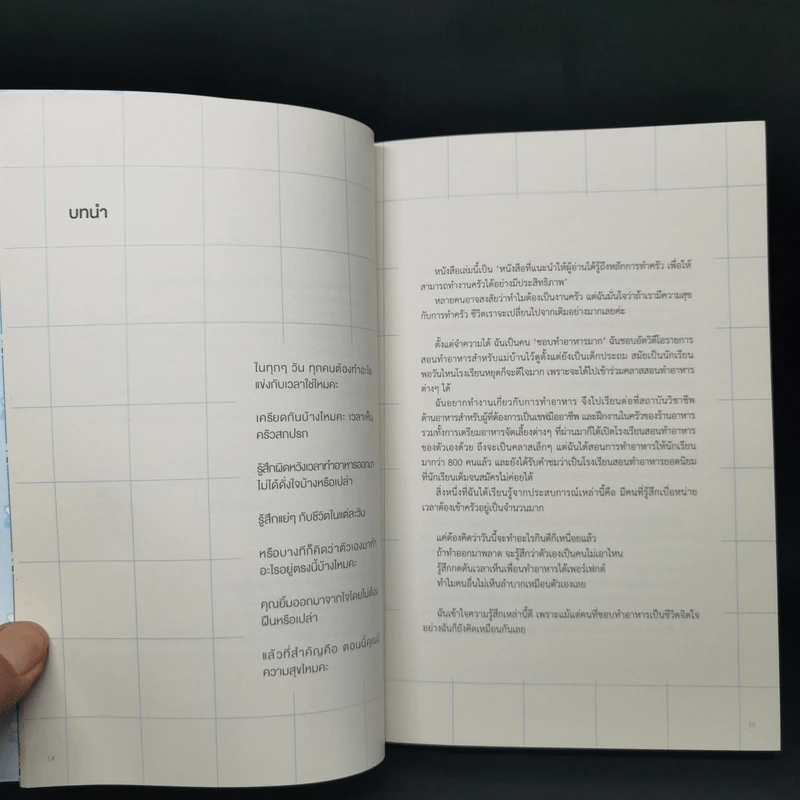 บทนำ
ในทุกๆ วัน ทุกคนต้องทำอะไร
แข่งกับเวลาใช่ไหมคะ
เครียดกันบ้างไหมคะ เวลาเห็น
ครัวสกปรก
รู้สึกผิดหวังเวลาทำอาหารออกมา
ไม่ได้ดั่งใจบ้างหรือเปล่า
รู้สึกแย่ๆ กับชีวิตในแต่ละวัน
หรือบางทีก็คิดว่าตัวเองมาทำ
อะไรอยู่ตรงนี้บ้างไหมคะ
คุณยิ้มออกมาจากใจโดยไม่ต้อง
ฝืนหรือเปล่า
แล้วที่สำคัญคือ ตอนนี้คุณมี
ความสุขไหมคะ
14
หนังสือเล่มนี้เป็น ‘หนังสือที่แนะนำให้ผู้อ่านได้รู้ถึงหลักการทำครัว เพื่อให้
สามารถทำงานครัวได้อย่างมีประสิทธิภาพ’
หลายคนอาจสงสัยว่าทำไมต้องเป็นงานครัว แต่ฉันมั่นใจว่าถ้าเรามีความสุข
กับการทำครัว ชีวิตเราจะเปลี่ยนไปจากเดิมอย่างมากเลยค่ะ
ตั้งแต่จำความได้ ฉันเป็นคน ‘ชอบทำอาหารมาก’ ฉันชอบอัดวิดีโอรายการ
สอนทำอาหารสำหรับแม่บ้านไว้ดูตั้งแต่ยังเป็นเด็กประถม สมัยเป็นนักเรียน
พอวันไหนโรงเรียนหยุดก็จะดีใจมาก เพราะจะได้ไปเข้าร่วมคลาสสอนทำอาหาร
ต่างๆ ได้
ฉันอยากทำงานเกี่ยวกับการทำอาหาร จึงไปเรียนต่อที่สถาบันวิชาชีพ
ด้านอาหารสำหรับผู้ที่ต้องการเป็นเชฟมืออาชีพ และฝึกงานในครัวของร้านอาหาร
รวมทั้งการเตรียมอาหารจัดเลี้ยงต่างๆ ที่ผ่านมาก็ได้เปิดโรงเรียนสอนทำอาหาร
ของตัวเองด้วย ถึงจะเป็นคลาสเล็กๆ แต่ฉันได้สอนการทำอาหารให้นักเรียน
มากว่า 800 คนแล้ว และยังได้รับคำชมว่าเป็นโรงเรียนสอนทำอาหารยอดนิยม
ที่นักเรียนเต็มจนสมัครไม่ค่อยได้
สิ่งหนึ่งที่ฉันได้เรียนรู้จากประสบการณ์เหล่านี้คือ มีคนที่รู้สึกเบื่อหน่าย
เวลาต้องเข้าครัวอยู่เป็นจำนวนมาก
แค่ต้องคิดว่าวันนี้จะทำอะไรกินดีก็เหนื่อยแล้ว
ถ้าทำออกมาพลาด จะรู้สึกว่าตัวเองเป็นคนไม่เอาไหน
รู้สึกกดดันเวลาเห็นเพื่อนทำอาหารได้เพอร์เฟกต์
ทำไมคนอื่นไม่เห็นลำบากเหมือนตัวเองเลย
ฉันเข้าใจความรู้สึกเหล่านี้ดี เพราะแม้แต่คนที่ชอบทำอาหารเป็นชีวิตจิตใจ
อย่างฉันก็ยังคิดเหมือนกันเลย
15